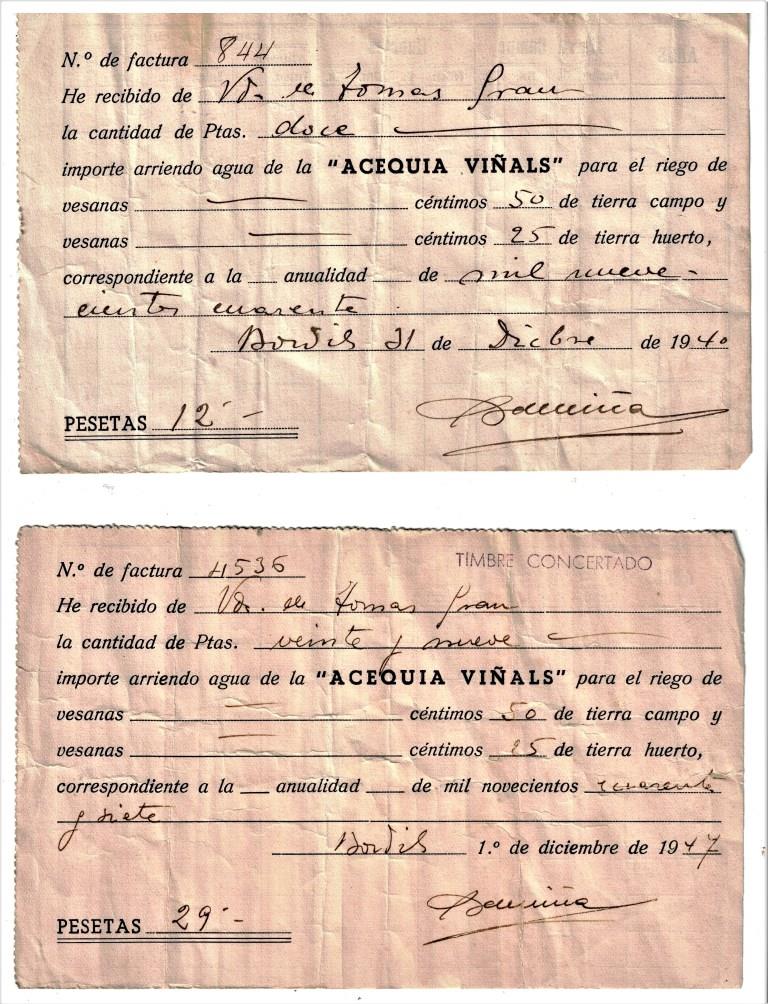 N.º de factura 844
He recibido de Vda. de Tomas Grau
la cantidad de Ptas. doce
importe arriendo agua de la "ACEQUIA VIÑALS" para el riego de
vesanas céntimos 50 de tierra campo y
vesanas céntimos 25 de tierra huerto,
correspondiente a la anualidad de mil nueve-
cientos cuarenta.
Bordils 31 de Dicbre de 1940
PESETAS 12'-
TIMBRE CONCERTADO
N.º de factura 4536
He recibido de Vda. de Tomas Grau
la cantidad de Ptas. veinte y nueve
importe arriendo agua de la "ACEQUIA VIÑALS" para el riego de
vesanas céntimos 50 de tierra campo y
vesanas céntimos 25 de tierra huerto,
correspondiente a la anualidad de mil novecientos cuarenta
y siete
Bordils 1.º de diciembre de 1947
PESETAS 29'-